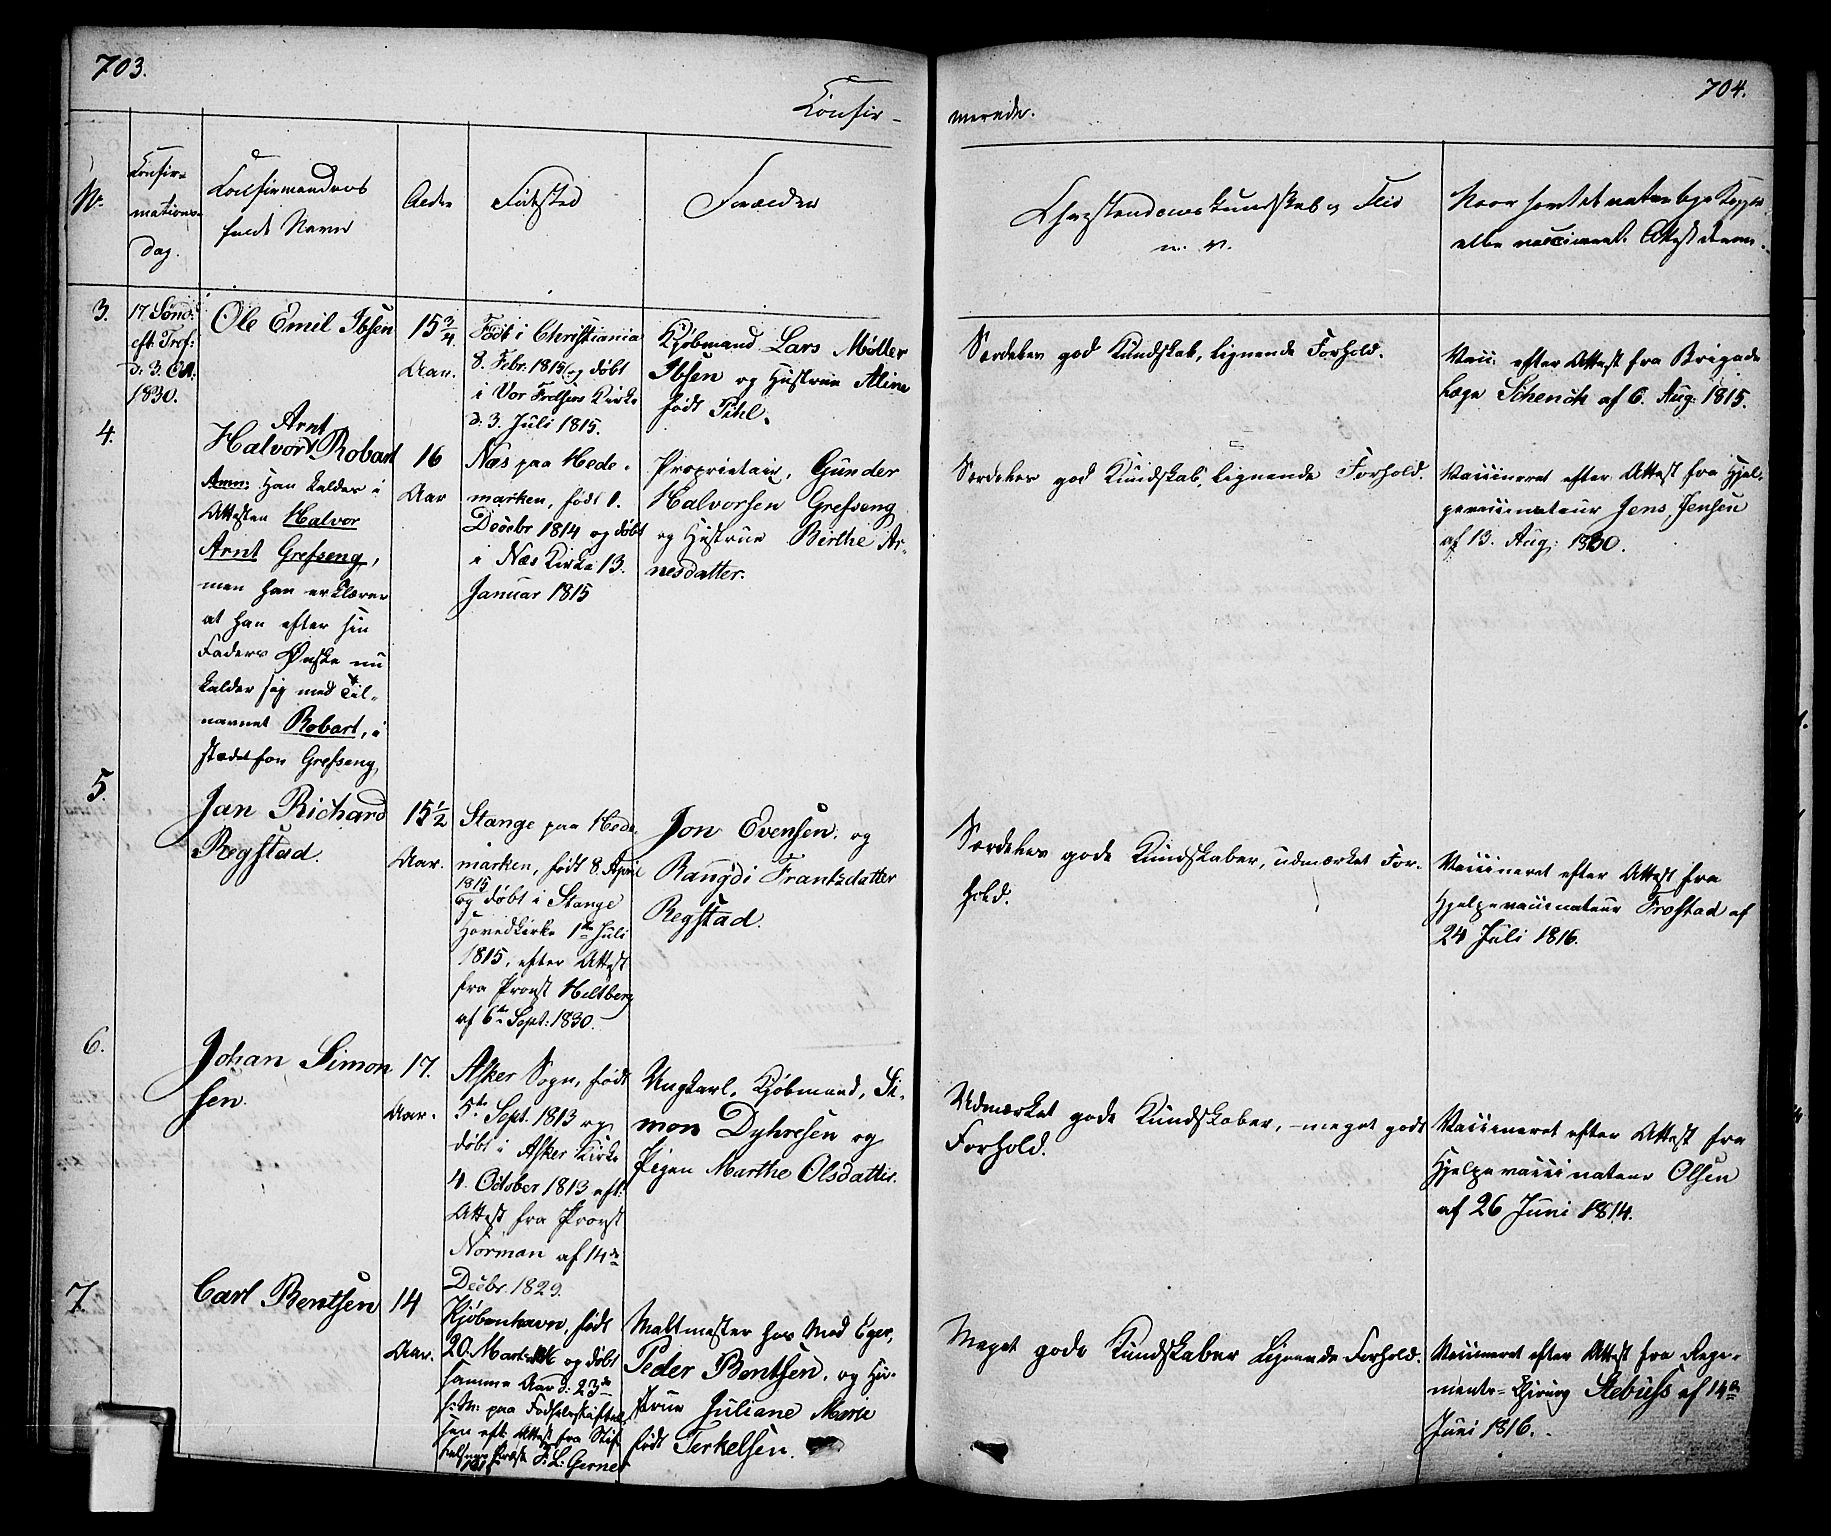 703.
Confir-
No.
Confir-
mations-
dag.
Confirmandens
fulde Navn
Alder
Födested
Forældre
3.
17. Sönd:
eft. Tref:
d. 3. Oct:
1830.
Ole Emil Ibsen
15 3/4
Aar.
Födt i Christiania
8. Febr. 1815 og döbt
i Vor Frelsers Kirke
d. 3. Juli 1815.
Kjöbmand Lars Möller
Ibsen og Hustrue Aline
födt Pihl.
4.
Arnt
Halvor Robart
Anm: Han kaldes i
Attesten Halvor
Arnt Grefseng,
men han erklærer
at han efter sin
Faders Önske nu
kalder sig med Til-
navnet Robart, i
stædet for Grefseng.
16
Aar
Næs paa Hede-
marken, födt 1.
Decebr 1814 og döbt
i Næs Kirke 13.
Januar 1815
Proprietair, Gunder
Halvorsen Grefseng
og Hustrue Birthe Ar-
nesdatter.
5.
Jan Richard
Regstad.
15 1/2
Aar.
Stange paa Hede-
marken, födt 8. April
1815
og döbt i Stange
Hovedkirke 1ste Juli
1815, efter Attest
fra Provst Heltberg
af 6te Sept: 1830.
Jon Evensen og
Rangdi Frantzdatter
Regstad.
6.
Johan Simon
sen.
17.
Aar.
Asker Sogn, födt
5te Sept. 1813 og
döbt i Asker Kirke
4. October 1813 eft:
Attest fra Provst
Norman af 14de
Decbr. 1829.
Ungkarl, Kjöbmand, Si-
mon Dyhresen og
Pigen Marthe Olsdatter.
7.
Carl Bentsen
14
Aar.
Kjöbenhavn, födt
20. Mart. og döbt
samme Aar d: 23de
s: M: paa Födselsstiftel-
sen eft. Attest fra Stif
telsens Præst F. L: Gerner
Maltmester hos Mad Eger,
Peder Bentsen, og Hu-
strue Juliane Marie
födt Terkelsen.
704.
merede.
Christendomskundskab, Flid
m. v.
Naar havt de naturlige Kopper
eller vaccineret. Attest derom.
Særdeles god Kundskab, lignende Forhold.
Vacc. efter Attest fra Brigade
læge Schenck af 6. Aug: 1815.
Særdeles god Kundskab, lignende Forhold.
Vaccineret efter Attest fra Hjel-
pevaccinateur Jens Jensen
af 13. Aug: 1830.
Særdeles gode Kundskaber, udmærket For-
hold.
Vaccineret efter Attest fra
Hjelpevaccinateur Frostad af
24 Juli 1816.
Udmærket gode Kundskaber, meget godt
Forhold.
Vaccineret efter Attest fra
Hjelpevaccinateur Olsen
af 26 Juni 1814.
Meget gode Kundskaber Lignende Forhold.
Vaccineret efter Attest fra Rege-
ments-Chirurg Stebuss af 14de
Juni 1816.